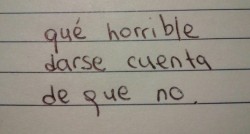 qué horrible
darse cuenta
de que no.